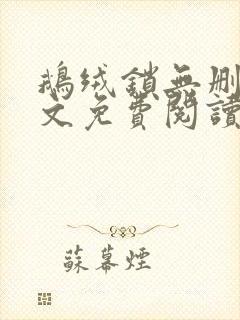 鵝絨鎖無删
文免費閱讀
蘇暮煙